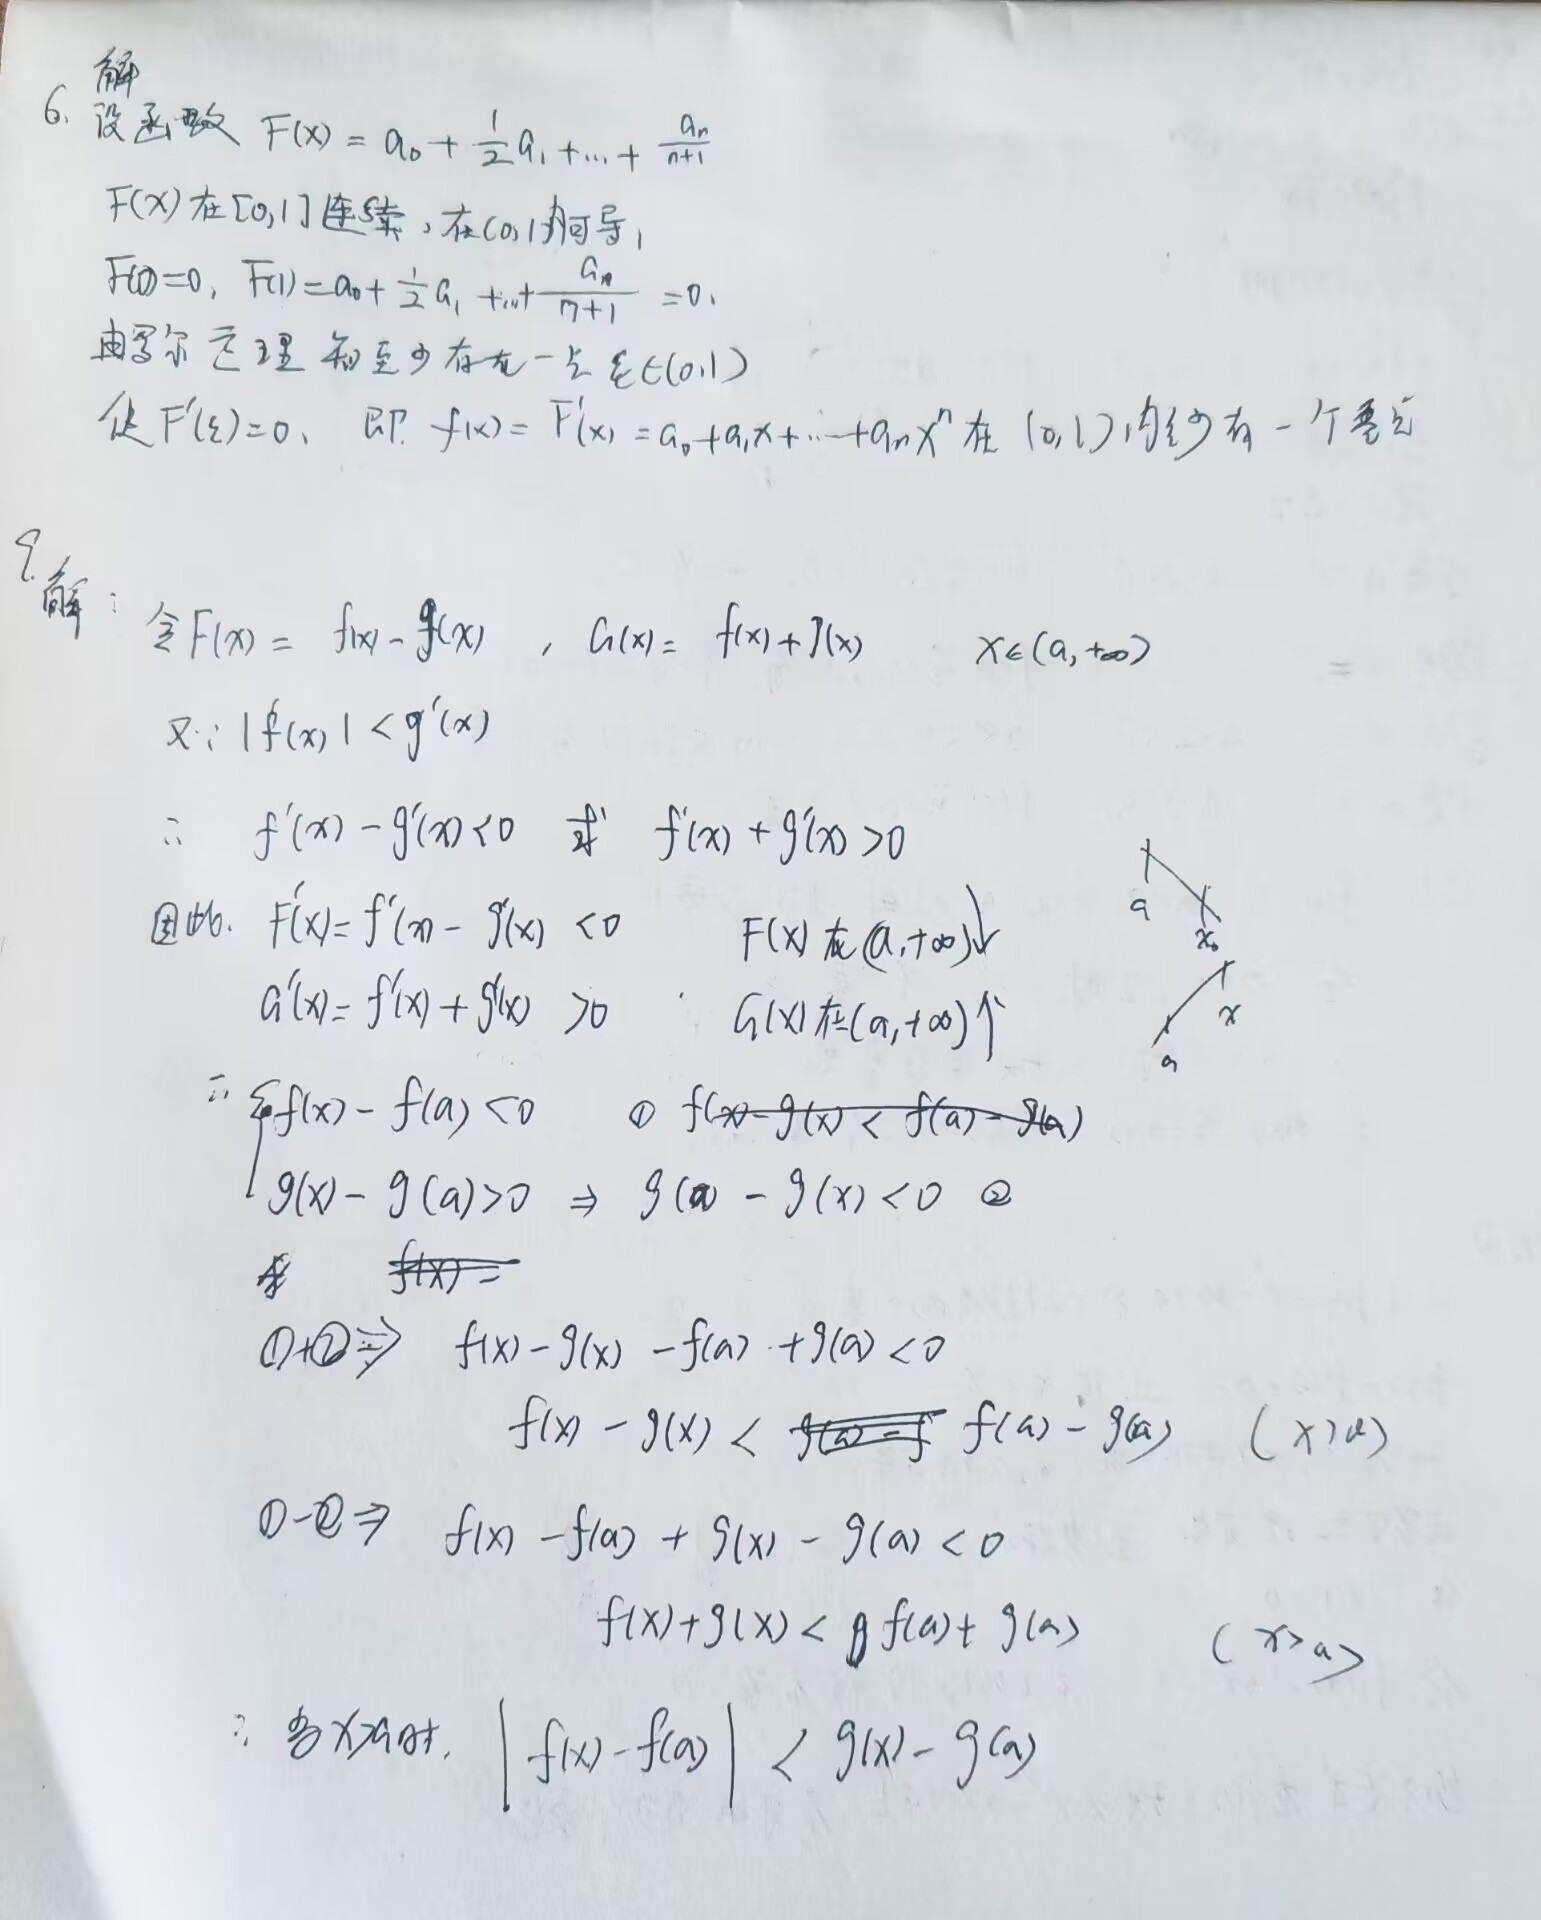 解
6. 设函数 F(x) = a₀ + 1/2 a₁ + ... + aₙ/(n+1)
F(x)在[0,1]连续,在(0,1)内可导,
F(0)=0, F(1)=a₀+1/2 a₁+...+aₙ/(n+1) =0.
由罗尔定理 知至少存在一点 ξ∈(0,1)
使F'(ξ)=0. 即 f(x)= F'(x) = a₀+a₁x+...+aₙxⁿ 在 (0,1)内至少有一个零点
9.
解: 令F(x) = f(x) - g(x) , G(x) = f(x)+g(x) x∈(a,+∞)
又∵ |f'(x)| < g'(x)
∴ f'(x) - g'(x)<0 或 f'(x) + g'(x) >0
因此. F'(x)= f'(x) - g'(x) <0 F(x)在(a,+∞)↓
G'(x)= f'(x)+g'(x) >0 G(x)在(a,+∞)↑
a
x₀
x
a
∴ { f(x) - f(a) <0 ① f(x)-g(x) < f(a)-g(a)
g(x) - g(a)>0 ⇒ g(a) - g(x) <0 ②
f(x) =
①+②⇒ f(x)-g(x) -f(a) +g(a) <0
f(x) - g(x) < g(a)-f f(a) - g(a) (x>a)
①-②⇒ f(x) -f(a) + g(x) - g(a) <0
f(x)+g(x) < f(a)+ g(a) (x>a)
∴ 当x>a时, | f(x)-f(a) | < g(x)-g(a)